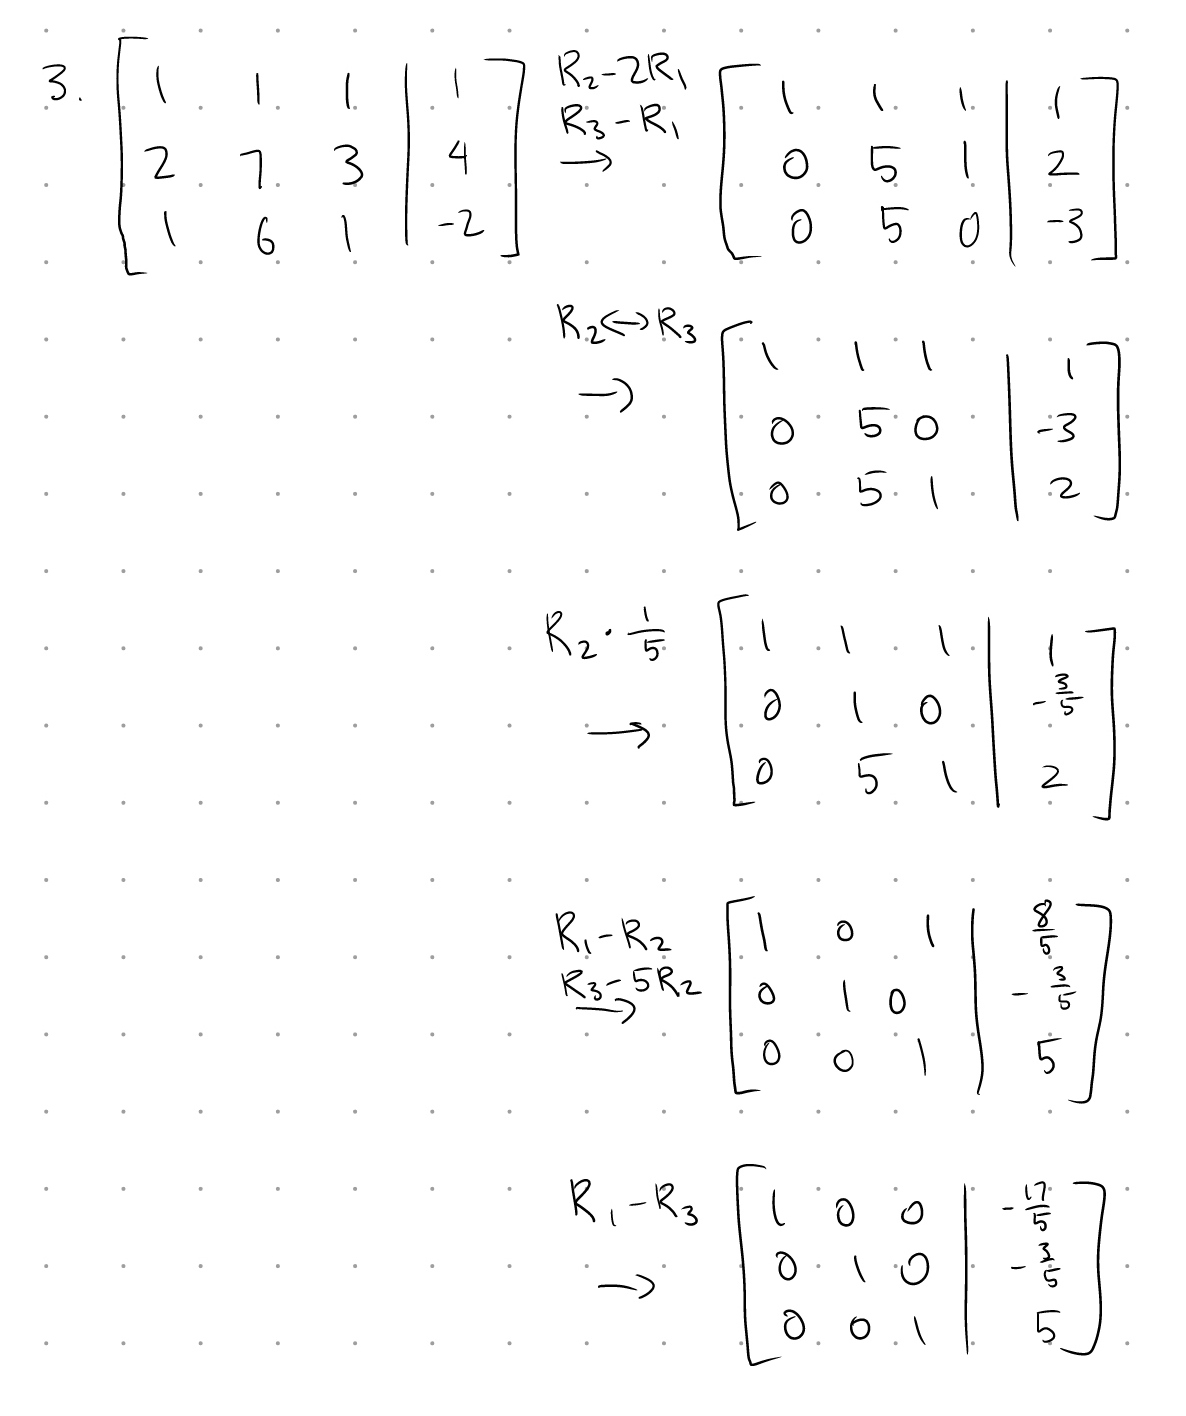 3. [ 1 1 1 | 1 ]
[ 2 7 3 | 4 ]
[ 1 6 1 | -2 ]
R₂-2R₁
R₃-R₁
→
[ 1 1 1 | 1 ]
[ 0 5 1 | 2 ]
[ 0 5 0 | -3 ]
R₂↔R₃
→
[ 1 1 1 | 1 ]
[ 0 5 0 | -3 ]
[ 0 5 1 | 2 ]
R₂ · 1/5
→
[ 1 1 1 | 1 ]
[ 0 1 0 | -3/5 ]
[ 0 5 1 | 2 ]
R₁-R₂
R₃-5R₂
→
[ 1 0 1 | 8/5 ]
[ 0 1 0 | -3/5 ]
[ 0 0 1 | 5 ]
R₁-R₃
→
[ 1 0 0 | -17/5 ]
[ 0 1 0 | -3/5 ]
[ 0 0 1 | 5 ]